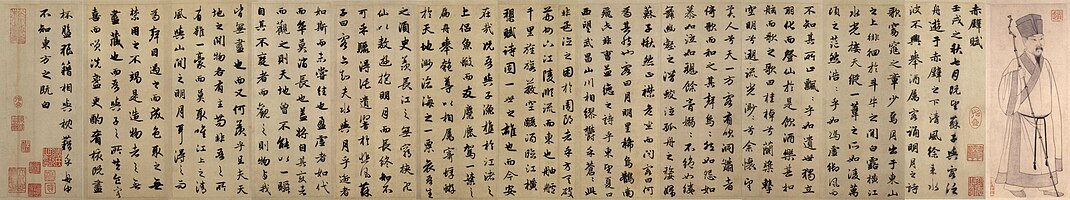 赤壁賦
壬戌之秋七月既望蘇子與客泛
舟遊于赤壁之下清風徐來水
波不興舉酒屬客誦明月之詩
歌窈窕之章少焉月出于東山
之上徘徊於斗牛之間白露橫江
水光接天縱一葦之所如凌萬
頃之茫然浩浩乎如馮虛御風而
不知其所止飄飄乎如遺世獨立
羽化而登仙於是飲酒樂甚扣
舷而歌之歌曰桂棹兮蘭槳擊
空明兮泝流光渺渺兮余懷望
美人兮天一方客有吹洞簫者
倚歌而和之其聲嗚嗚然如怨如
慕如泣如訴餘音嫋嫋不絕如縷
舞幽壑之潛蛟泣孤舟之嫠婦
蘇子愀然正襟危坐而問客曰何
為其然也客曰月明星稀烏鵲南
飛此非曹孟德之詩乎東望夏口
西望武昌山川相繆鬱乎蒼蒼此
非孟德之困於周郎者乎方其破
荊州下江陵順流而東也舳艫
千里旌旗蔽空釃酒臨江橫
槊賦詩固一世之雄也而今安
在哉況吾與子漁樵於江渚之
上侶魚蝦而友麋鹿駕一葉之
扁舟舉匏樽以相屬寄蜉蝣
於天地渺滄海之一粟哀吾生
之須臾羨長江之無窮挾飛
仙以遨遊抱明月而長終知不
可乎驟得託遺響於悲風蘇
子曰客亦知夫水與月乎逝者
如斯而未嘗往也盈虛者如代
而卒莫消長也蓋將自其變者
而觀之則天地曾不能以一瞬
自其不變者而觀之則物與我
皆無盡也而又何羨乎且夫天
地之間物各有主苟非吾之所
有雖一毫而莫取惟江上之清
風與山間之明月耳得之而
為聲目遇之而成色取之無
禁用之不竭是造物者之無
盡藏也而吾與子之所共食客
喜而笑洗盞更酌肴核既盡
杯盤狼藉相與枕藉乎舟中
不知東方之既白